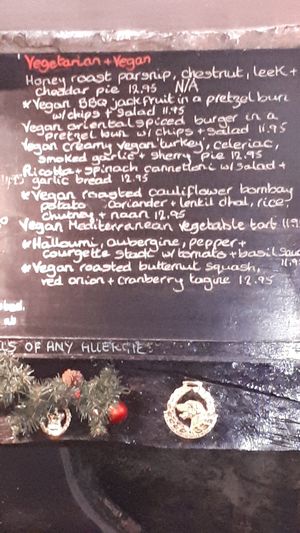 Vegetarian + Vegan
Honey roast parsnip, chestnut, leek +
cheddar pie 12.95 N/A
*Vegan BBQ jackfruit in a pretzel bun
w/ chips + salad 11.95
Vegan oriental spiced burger in a
pretzel bun w/ chips + salad 11.95
Vegan creamy vegan turkey, celeriac,
smoked garlic + sherry pie 12.95
Ricotta + spinach cannelloni w/ salad +
garlic bread 12.95
*Vegan roasted cauliflower bombay
potato, coriander + lentil dhal, rice,
chutney + naan 12.95
Vegan Mediterranean vegetable tart 11.9
*Halloumi, aubergine, pepper +
courgette stack w/ tomato + basil sauc
11.9
*Vegan roasted butternut squash,
red onion + cranberry tagine 12.95
OF ANY ALLERGIES